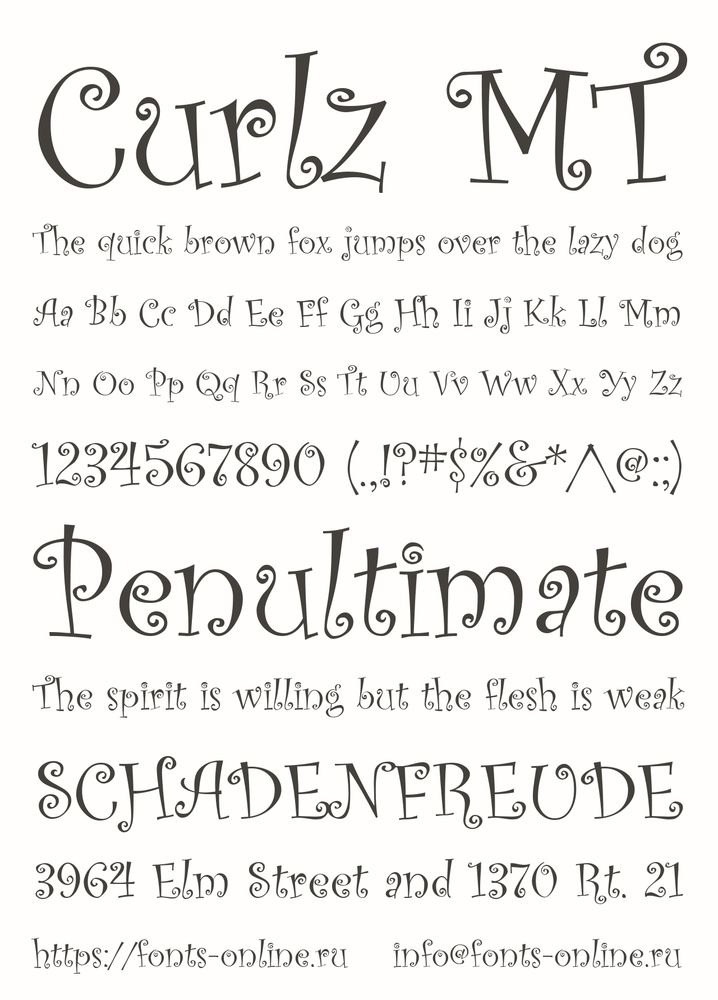 Curlz MT
The quick brown fox jumps over the lazy dog
Aa Bb Cc Dd Ee Ff Gg Hh Ii Jj Kk Ll Mm
Nn Oo Pp Qq Rr Ss Tt Uu Vv Ww Xx Yy Zz
1234567890 (.,!?#$%&*/\@:;)
Penultimate
The spirit is willing but the flesh is weak
SCHADENFREUDE
3964 Elm Street and 1370 Rt. 21
https://fonts-online.ru info@fonts-online.ru